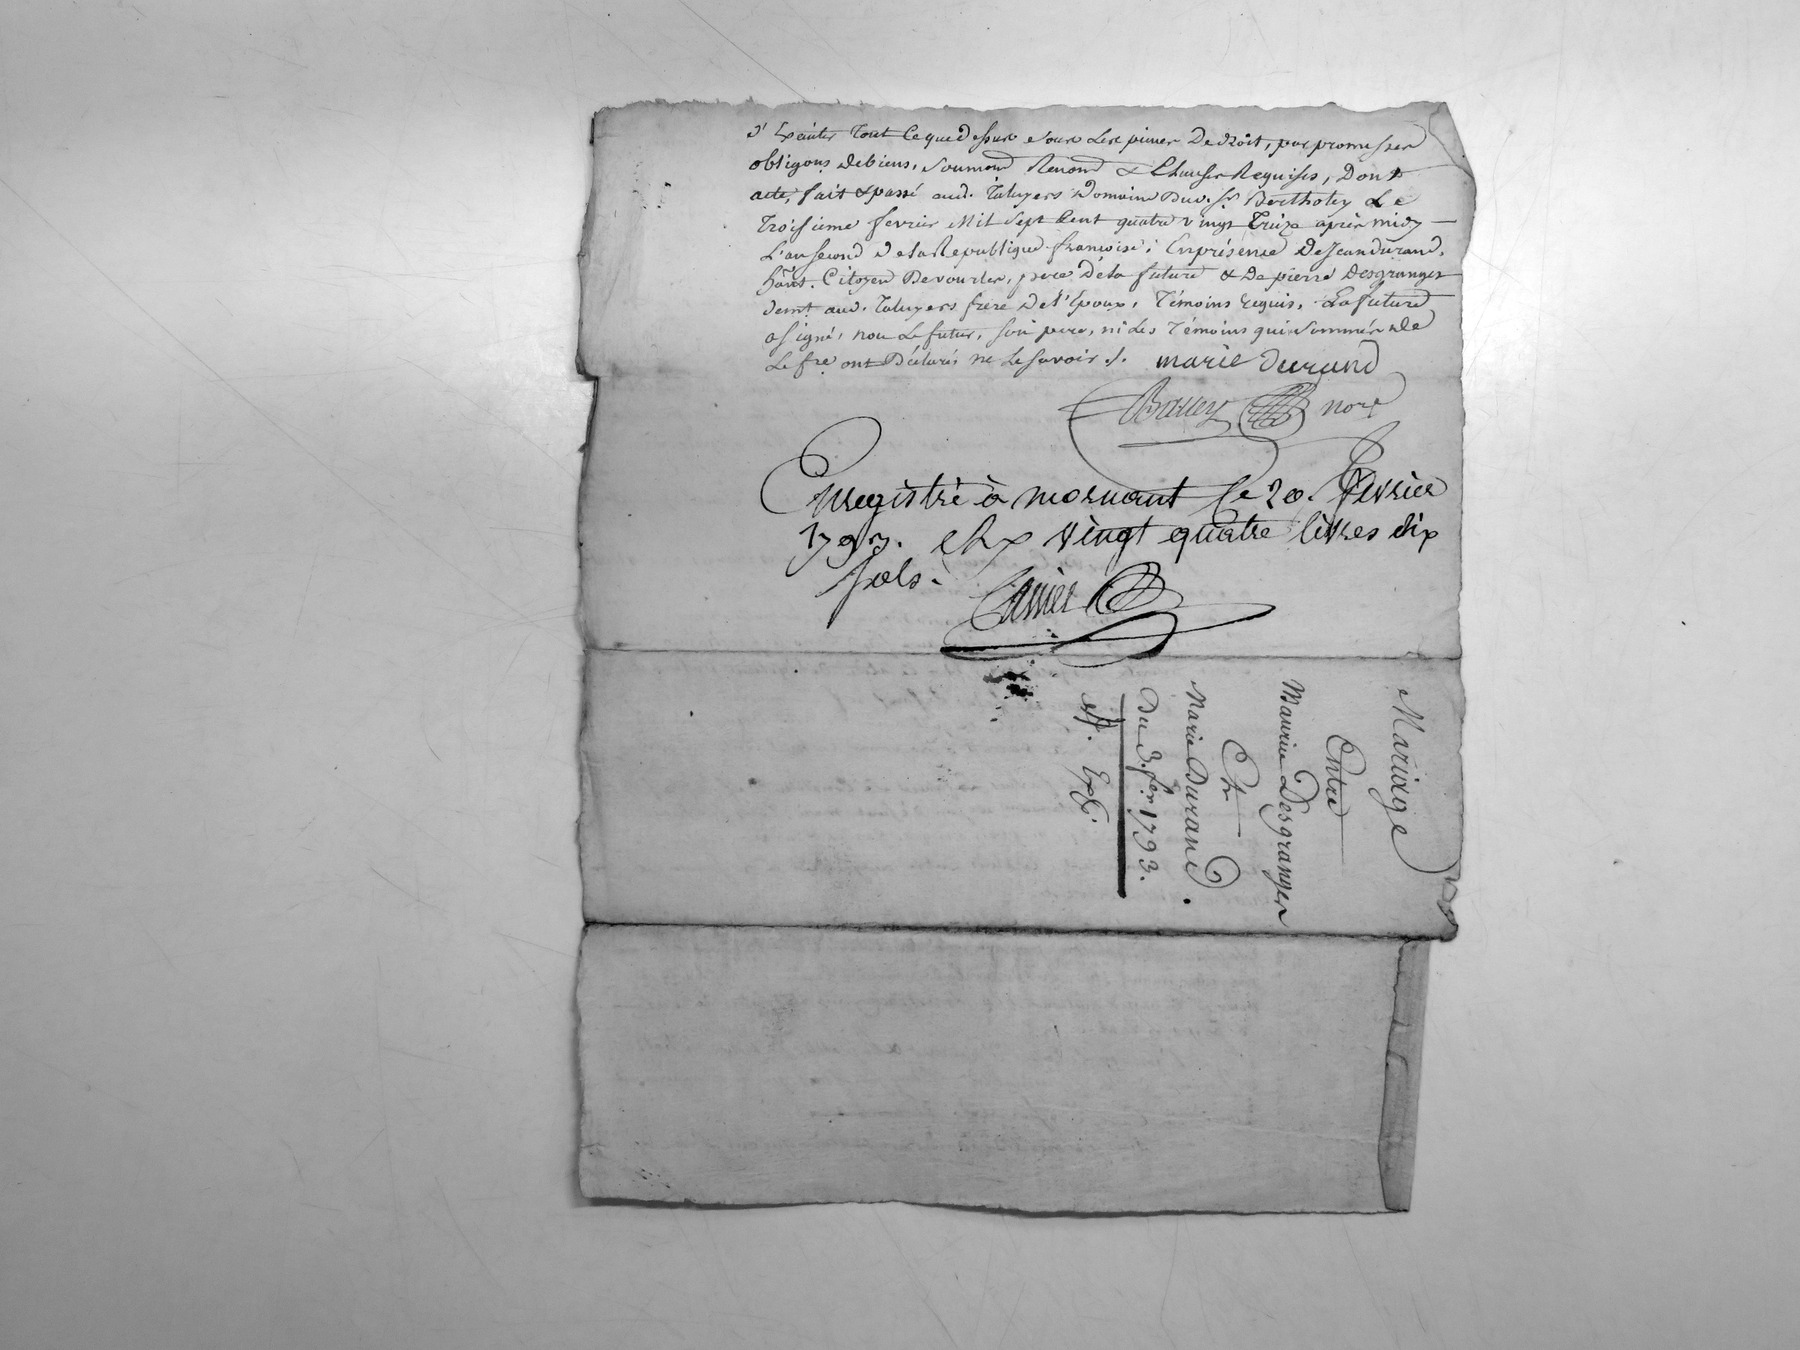 d'Exécuter Tout Ce que dessus sous Les peines De droit, par promesses
obligons de biens, soumons Renons & Clauses Requises, Dont
acte, fait & passé aud. Taluyers Domaine Dud. Sr. Bertholey Le
Troisieme fevrier Mil Sept Cent quatre vingt Treize après midy
L'an second de la Republique françoise; En présence de Jean durand,
hânt. Citoyen De vourles, pere de la future & De pierre Desgranges
demt. aud. Taluyers frere de l'Epoux, Témoins requis, La future
a signé, non Le futur, son pere, ni Les Témoins qui sommés de
Le fre. ont Déclarés ne Le savoir ./. marie durand
nore
Enregistré à mornant le 20. fevrier
1793. vingt quatre livres dix
sols.
Mariage
Entre
Maurice Desgranges
Et
Marie Durand.
Du 3. fer. 1793.
Exp.